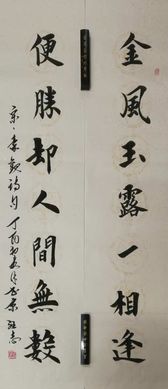 金風玉露一相逢
便勝却人間無數
宋·秦觀詩句 丁酉